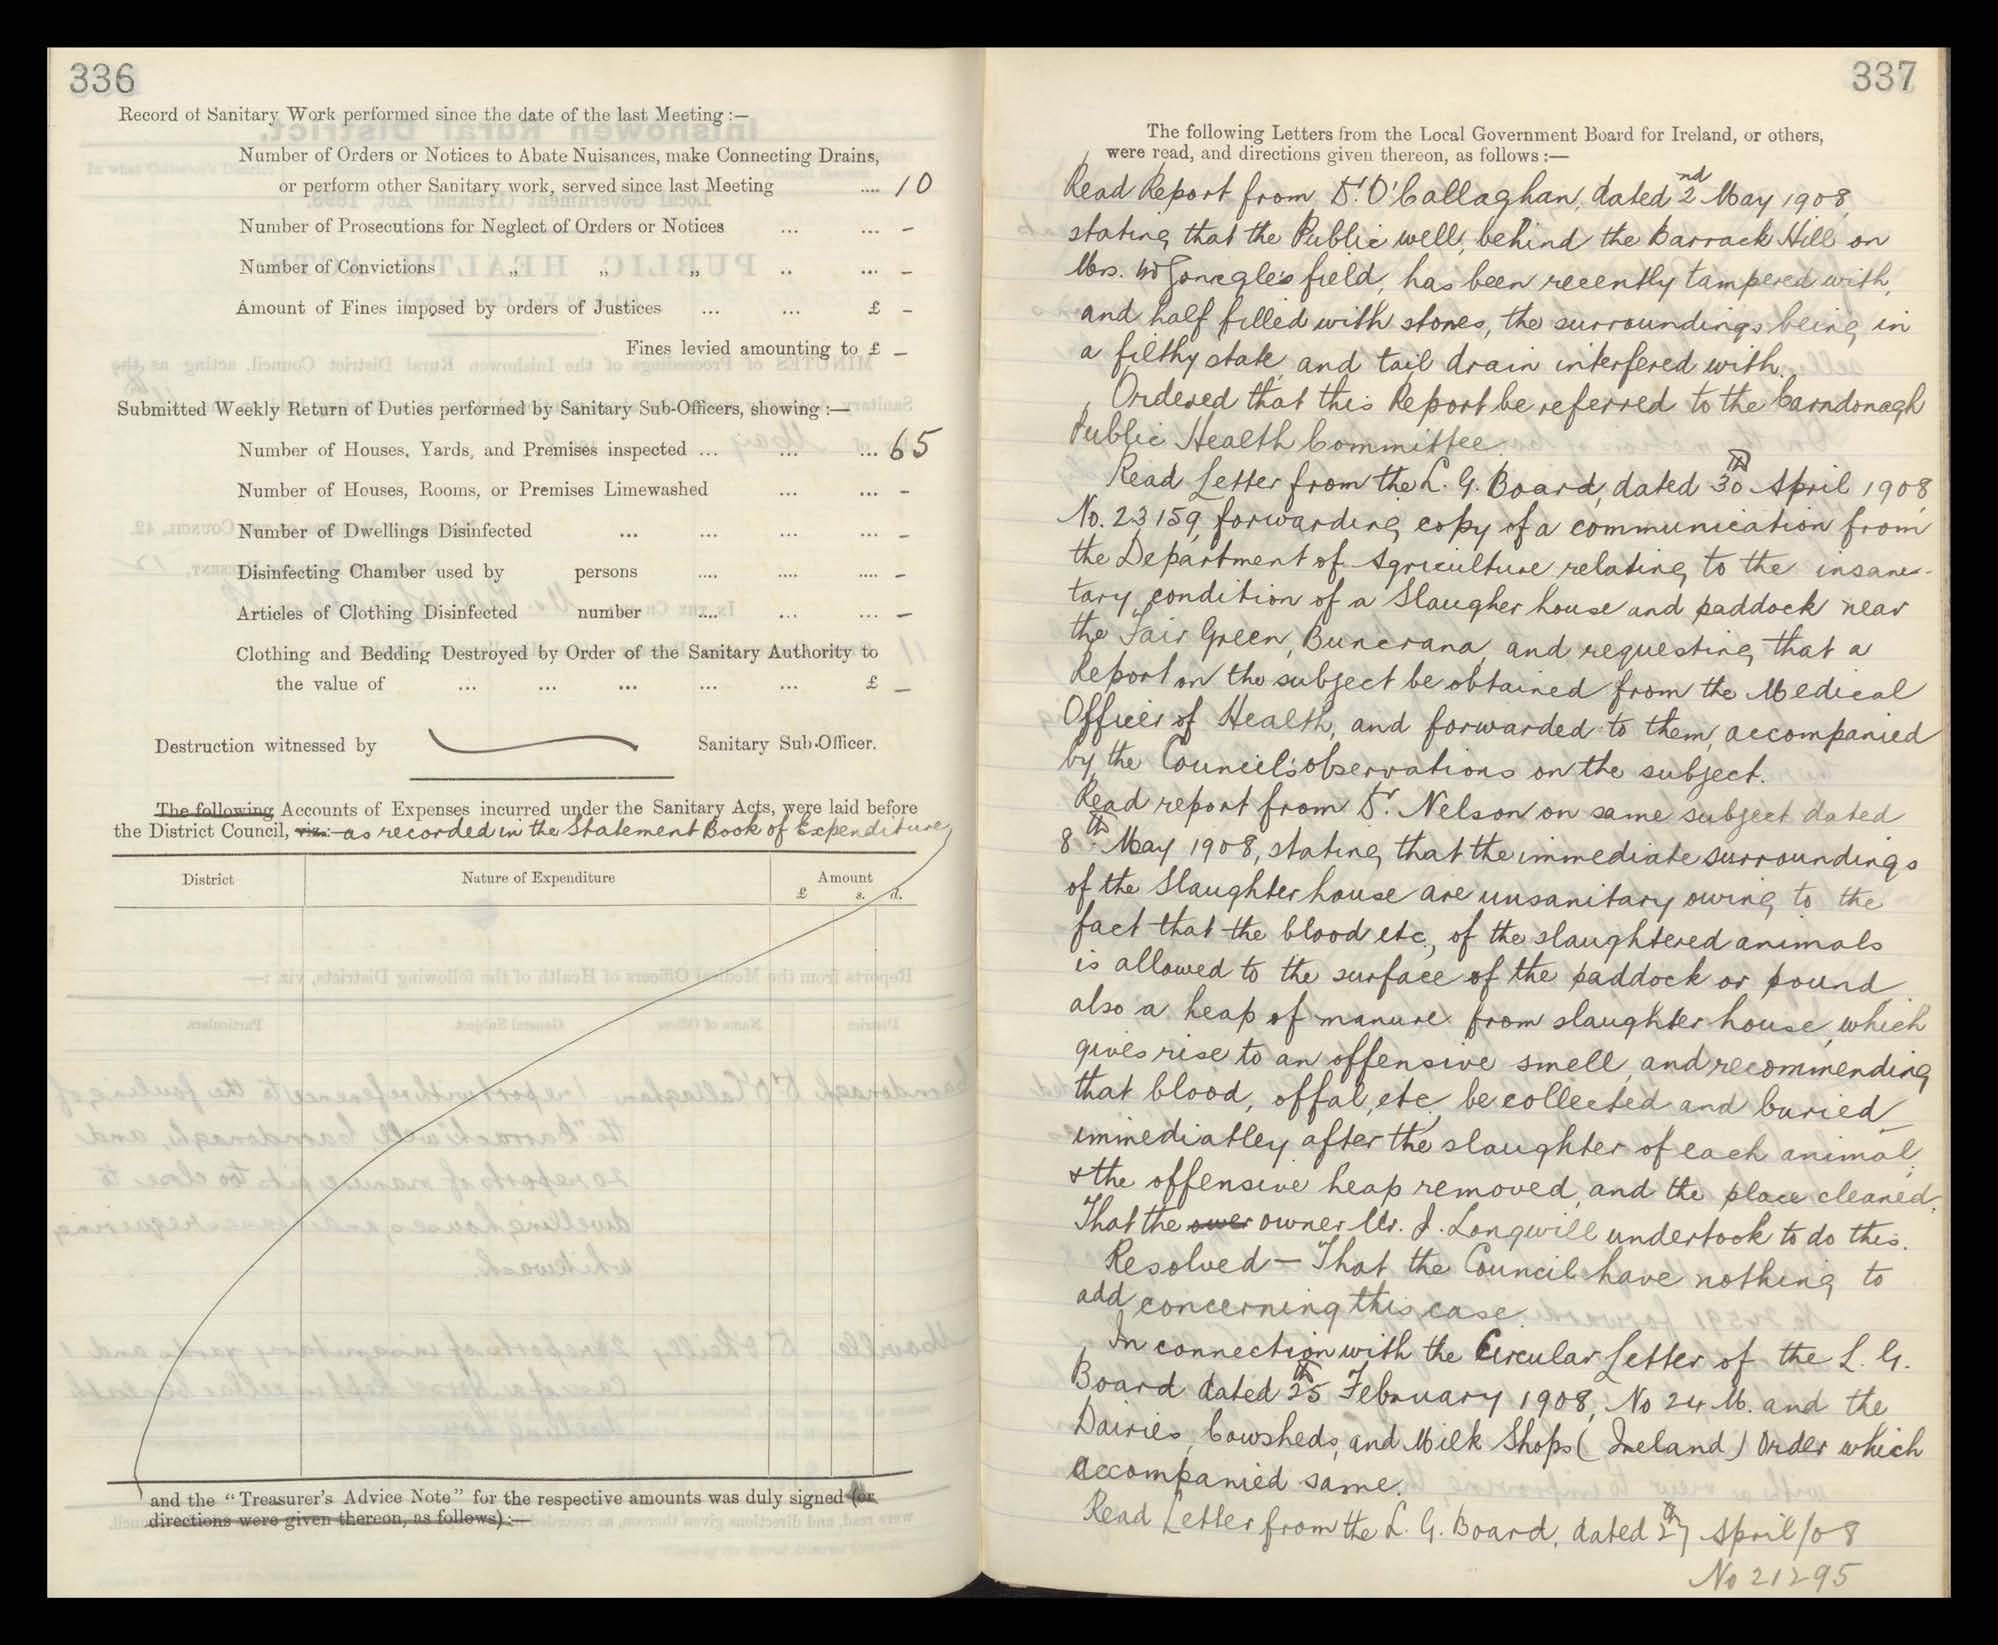 336
Record of Sanitary Work performed since the date of the last Meeting :—
Number of Orders or Notices to Abate Nuisances, make Connecting Drains,
or perform other Sanitary work, served since last Meeting .... 10
Number of Prosecutions for Neglect of Orders or Notices ... ... -
Number of Convictions „ „ „ .. ... -
Amount of Fines imposed by orders of Justices ... ... £ -
Fines levied amounting to £ -
Submitted Weekly Return of Duties performed by Sanitary Sub-Officers, showing :—
Number of Houses, Yards, and Premises inspected ... ... ... 65
Number of Houses, Rooms, or Premises Limewashed ... ... -
Number of Dwellings Disinfected ... ... ... ... -
Disinfecting Chamber used by persons .... .... .... -
Articles of Clothing Disinfected number .... ... ... -
Clothing and Bedding Destroyed by Order of the Sanitary Authority to
the value of ... ... ... ... ... £ -
Destruction witnessed by Sanitary Sub-Officer.
The following Accounts of Expenses incurred under the Sanitary Acts, were laid before
the District Council, viz.:— as recorded in the Statement Book of Expenditure
District Nature of Expenditure Amount
£ s. d.
and the "Treasurer's Advice Note" for the respective amounts was duly signed (or
directions were given thereon, as follows) :—
337
The following Letters from the Local Government Board for Ireland, or others,
were read, and directions given thereon, as follows :—
Read Report from Dr. O'Callaghan, dated 2nd May 1908,
stating that the Public well, behind the Barrack Hill on
Mrs. McGonegle's field, has been recently tampered with,
and half filled with stones, the surroundings being in
a filthy state, and tail drain interfered with.
Ordered that this Report be referred to the Carndonagh
Public Health Committee.
Read Letter from the L. G. Board, dated 30th April 1908
No. 23159, forwarding copy of a communication from
the Department of Agriculture relating to the insani-
tary condition of a Slaugher house and paddock near
the Fair Green, Buncrana, and requesting that a
Report on the subject be obtained from the Medical
Officer of Health, and forwarded to them, accompanied
by the Council's observations on the subject.
Read report from Dr. Nelson on same subject dated
8th May 1908, stating that the immediate surroundings
of the Slaughter house are unsanitary owing to the
fact that the blood etc., of the slaughtered animals
is allowed to the surface of the paddock or pound
also a heap of manure from slaughter house, which
gives rise to an offensive smell, and recommending
that blood, offal, etc, be collected and buried
immediatley after the slaughter of each animal,
& the offensive heap removed, and the place cleaned.
That the ower owner Mr. J. Longwill undertook to do this.
Resolved — That the Council have nothing to
add concerning this case.
In connection with the Circular Letter of the L. G.
Board dated 25th February 1908, No 24 M. and the
Dairies, Cowsheds, and Milk Shops (Ireland) Order which
accompanied same.
Read Letter from the L. G. Board, dated 27th April/08
No 21295